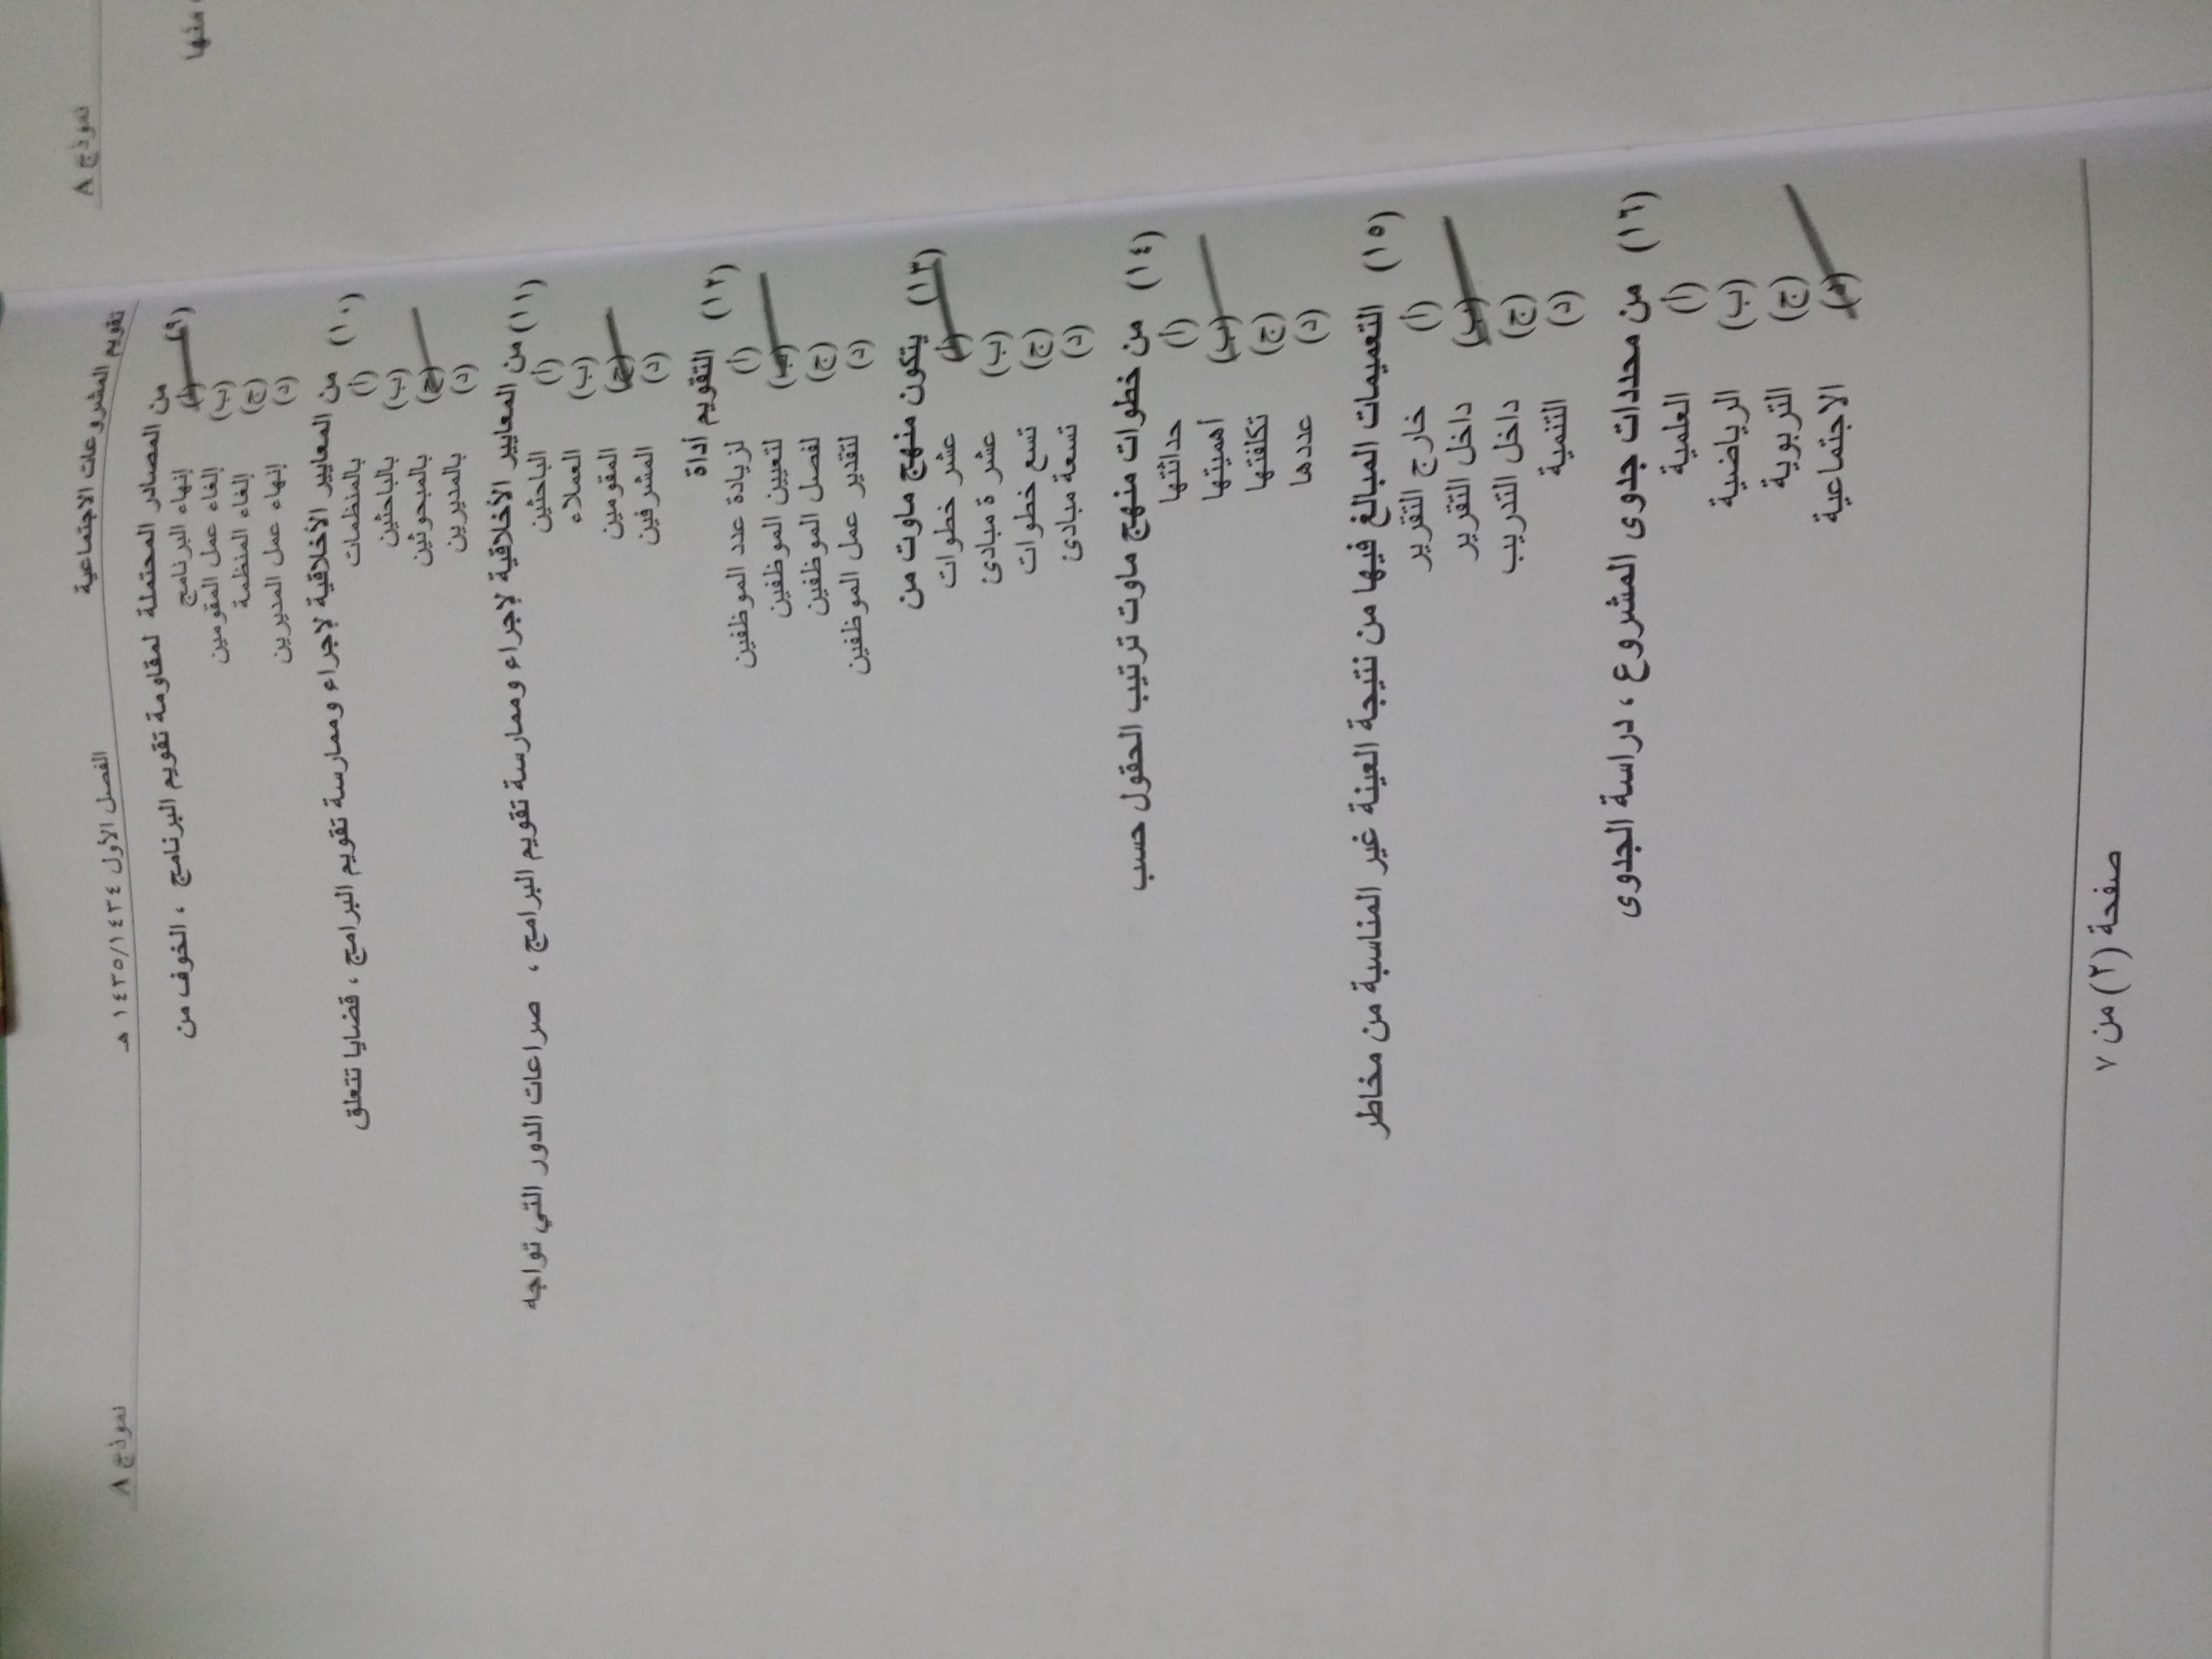 نموذج A
منها
تقويم المشروعات الاجتماعية
الفصل الأول ١٤٣٥/١٤٣٤ هـ
نموذج A
(٩) من المصادر المحتملة لمقاومة تقويم البرنامج ، الخوف من
(أ) إنهاء البرنامج
(ب) إلغاء عمل المقومين
(ج) إلغاء المنظمة
(د) إنهاء عمل المديرين
(١٠) من المعايير الأخلاقية لإجراء وممارسة تقويم البرامج ، قضايا تتعلق
(أ) بالمنظمات
(ب) بالباحثين
(ج) بالمبحوثين
(د) بالمديرين
(١١) من المعايير الأخلاقية لإجراء وممارسة تقويم البرامج ، صراعات الدور التي تواجه
(أ) الباحثين
(ب) العملاء
(ج) المقومين
(د) المشرفين
(١٢) التقويم أداة
(أ) لزيادة عدد الموظفين
(ب) لتعيين الموظفين
(ج) لفصل الموظفين
(د) لتقدير عمل الموظفين
(١٣) يتكون منهج ماوت من
(أ) عشر خطوات
(ب) عشر ة مبادئ
(ج) تسع خطوات
(د) تسعة مبادئ
(١٤) من خطوات منهج ماوت ترتيب الحقول حسب
(أ) حداثتها
(ب) أهميتها
(ج) تكلفتها
(د) عددها
(١٥) التعميمات المبالغ فيها من نتيجة العينة غير المناسبة من مخاطر
(أ) خارج التقرير
(ب) داخل التقرير
(ج) داخل التدريب
(د) التنمية
(١٦) من محددات جدوى المشروع ، دراسة الجدوى
(أ) العلمية
(ب) الرياضية
(ج) التربوية
(د) الاجتماعية
صفحة (٢) من ٧